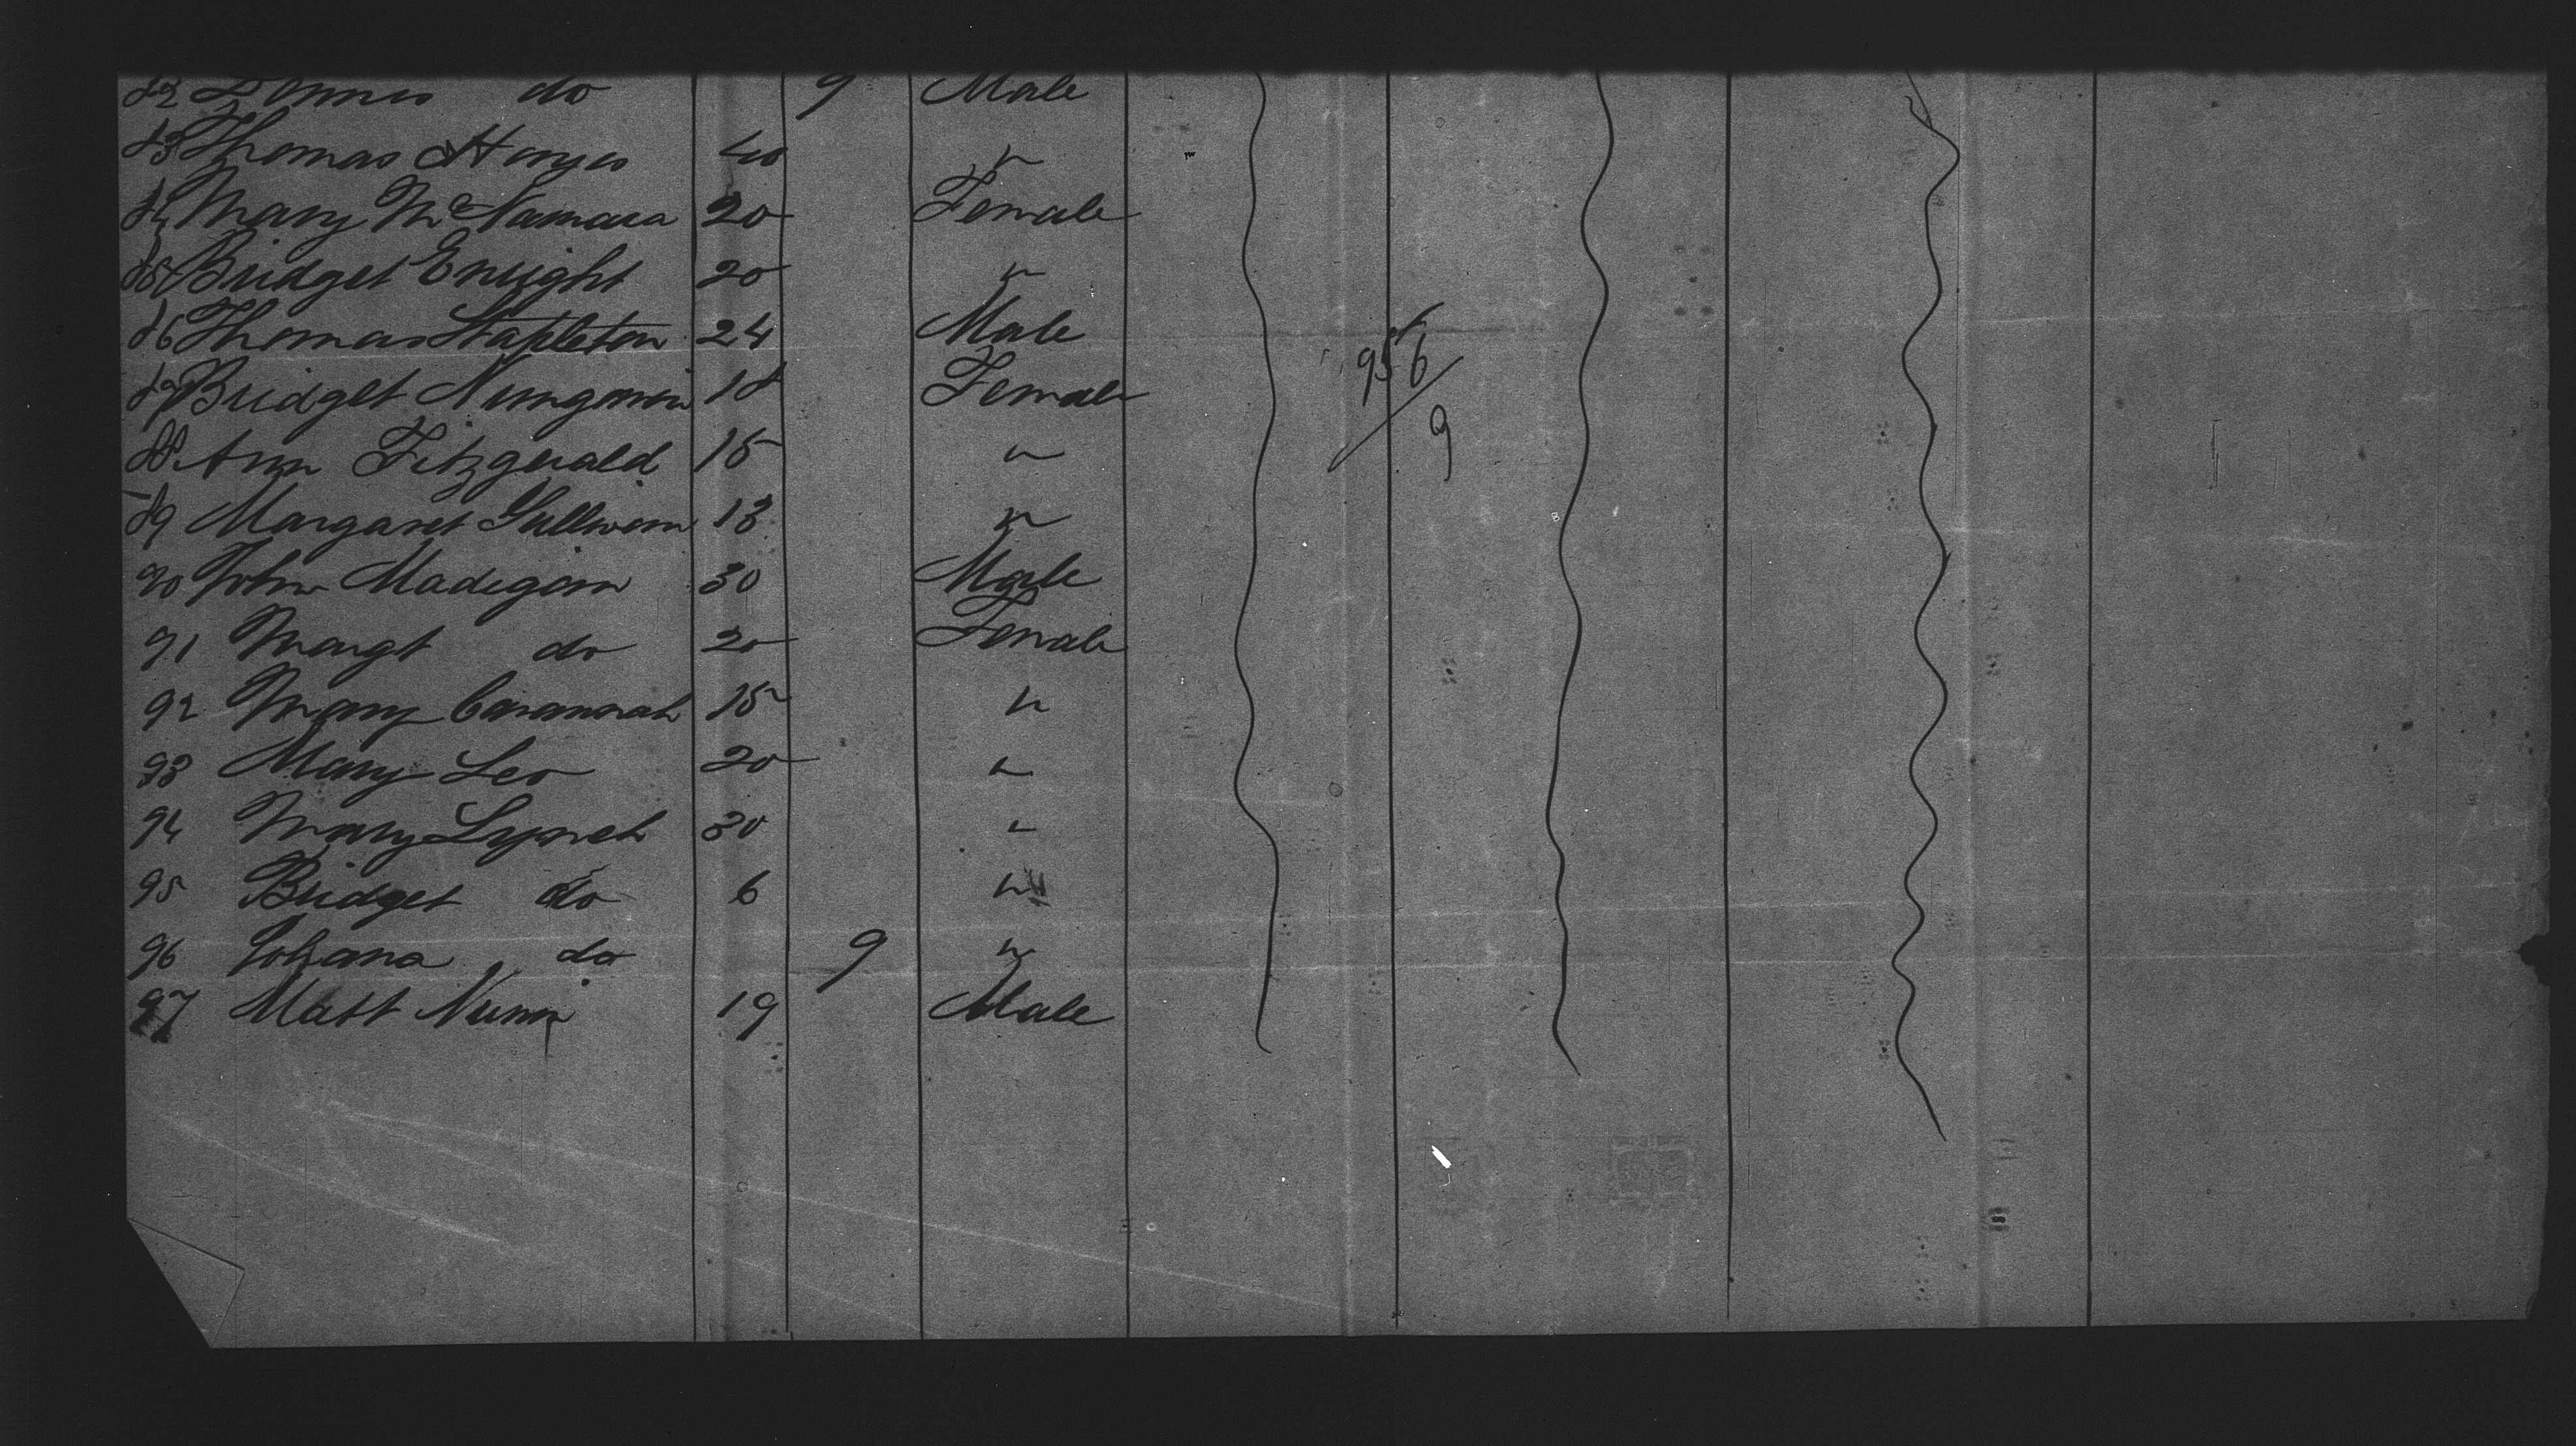 82 Dennis do 9 Male
83 Thomas Hayes 40 "
84 Mary McNamara 20 Female
85 Bridget Enright 20 "
86 Thomas Stapleton 24 Male
87 Bridget 18 Female
88 Ann Fitzgerald 15 "
89 Margaret Sullivan 13 "
90 John Madigan 30 Male
91 Margt do 20 Female
92 Mary Cavanah 15 "
93 Mary Leo 20 "
94 Mary Lynch 30 "
95 Bridget do 6 "
96 Johana do 9 "
97 Matt 19 Male
956/9